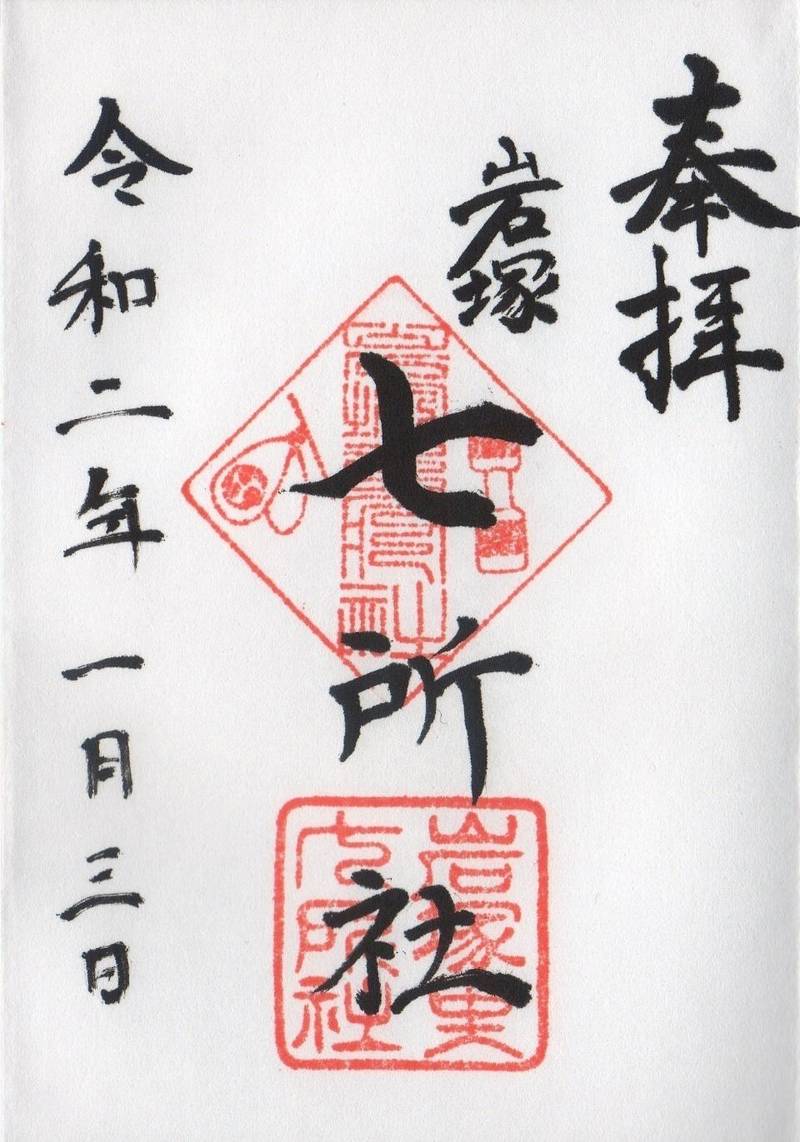 奉拝
岩塚
七所社
岩塚里
七所社
令和二年一月三日